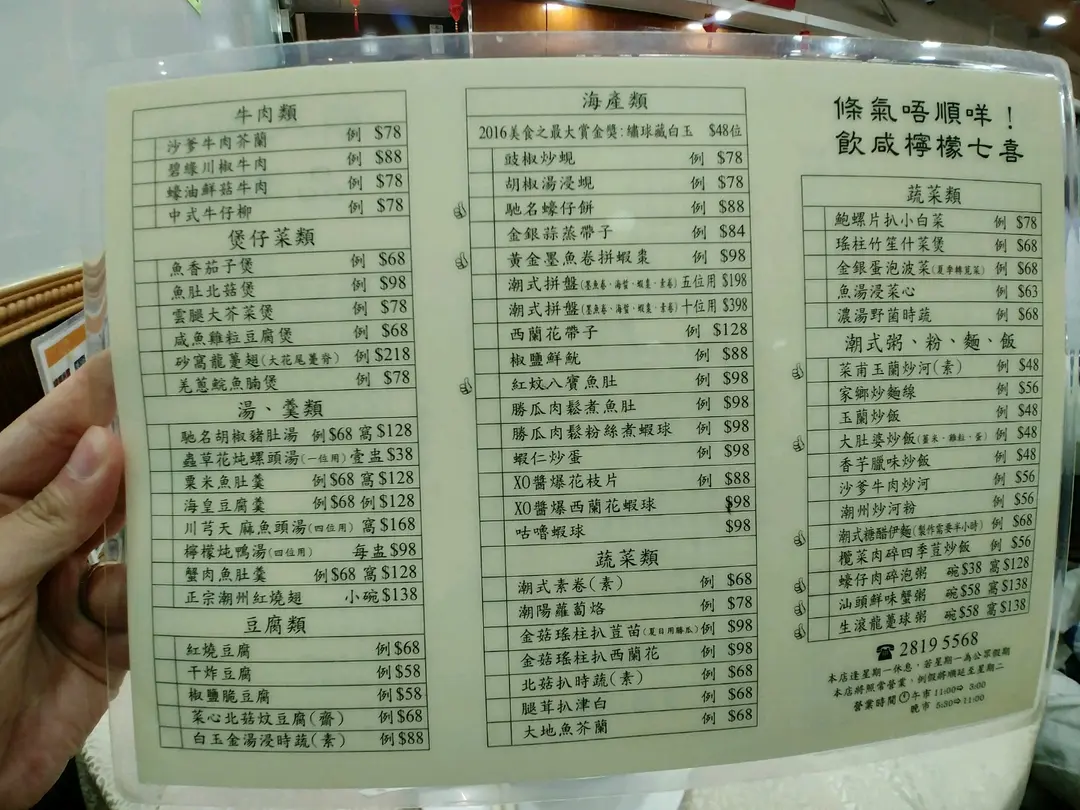 牛肉類
沙爹牛肉芥蘭 例 $78
碧綠川椒牛肉 例 $88
蠔油鮮菇牛肉 例 $78
中式牛仔柳 例 $78
煲仔菜類
魚香茄子煲 例 $68
魚肚北菇煲 例 $98
雲腿大芥菜煲 例 $78
咸魚雞粒豆腐煲 例 $68
砂窩龍躉翅(大花尾躉脊) 例 $218
羌蔥鯇魚腩煲 例 $78
湯、羹類
馳名胡椒豬肚湯 例$68 窩$128
蟲草花炖螺頭湯(一位用) 壹盅$38
粟米魚肚羹 例$68 窩$128
海皇豆腐羹 例$68 例$128
川芎天麻魚頭湯(四位用) 窩$168
檸檬炖鴨湯(四位用) 每盅$98
蟹肉魚肚羹 例$68 窩$128
正宗潮州紅燒翅 小碗$138
豆腐類
紅燒豆腐 例$68
干炸豆腐 例$58
椒鹽脆豆腐 例$58
菜心北菇炆豆腐(齋) 例$68
白玉金湯浸時蔬(素) 例$88
海產類
2016美食之最大賞金獎:繡球藏白玉 $48位
豉椒炒蜆 例 $78
胡椒湯浸蜆 例 $78
馳名蠔仔餅 例 $88
金銀蒜蒸帶子 例 $84
黃金墨魚卷拼蝦棗 例 $98
潮式拼盤(墨魚卷、海蜇、蝦棗、素卷) 五位用 $198
潮式拼盤(墨魚卷、海蜇、蝦棗、素卷) 十位用 $398
西蘭花帶子 例 $128
椒鹽鮮魷 例 $88
紅炆八寶魚肚 例 $98
勝瓜肉鬆煮魚肚 例 $98
勝瓜肉鬆粉絲煮蝦球 例 $98
蝦仁炒蛋 例 $98
XO醬爆花枝片 例 $88
XO醬爆西蘭花蝦球 $98
咕嚕蝦球 $98
蔬菜類
潮式素卷(素) 例 $68
潮陽蘿蔔烙 例 $78
金菇瑤柱扒荳苗(夏日用勝瓜) 例 $98
金菇瑤柱扒西蘭花 例 $98
北菇扒時蔬(素) 例 $68
腿茸扒津白 例 $68
大地魚芥蘭 例 $68
條氣唔順咩!
飲咸檸檬七喜
蔬菜類
鮑螺片扒小白菜 例 $78
瑤柱竹笙什菜煲 例 $68
金銀蛋泡波菜(夏季轉莧菜) 例 $68
魚湯浸菜心 例 $63
濃湯野菌時蔬 例 $68
潮式粥、粉、麵、飯
菜甫玉蘭炒河(素) 例 $48
家鄉炒麵線 例 $56
玉蘭炒飯 例 $48
大肚婆炒飯(薑米、雞粒、蛋) 例 $48
香芋臘味炒飯 例 $48
沙爹牛肉炒河 例 $56
潮州炒河粉 例 $56
潮式糖醋伊麵(製作需要半小時) 例 $68
欖菜肉碎四季荳炒飯 例 $56
蠔仔肉碎泡粥 碗$38 窩$128
汕頭鮮味蟹粥 碗$58 窩$138
生滾龍躉球粥 碗$58 窩$138
☎ 2819 5568
本店逢星期一休息,若星期一為公眾假期
本店將照常營業,例假將順延至星期二
營業時間 午市 11:00⇨ 3:00
晚市 5:30⇨11:00